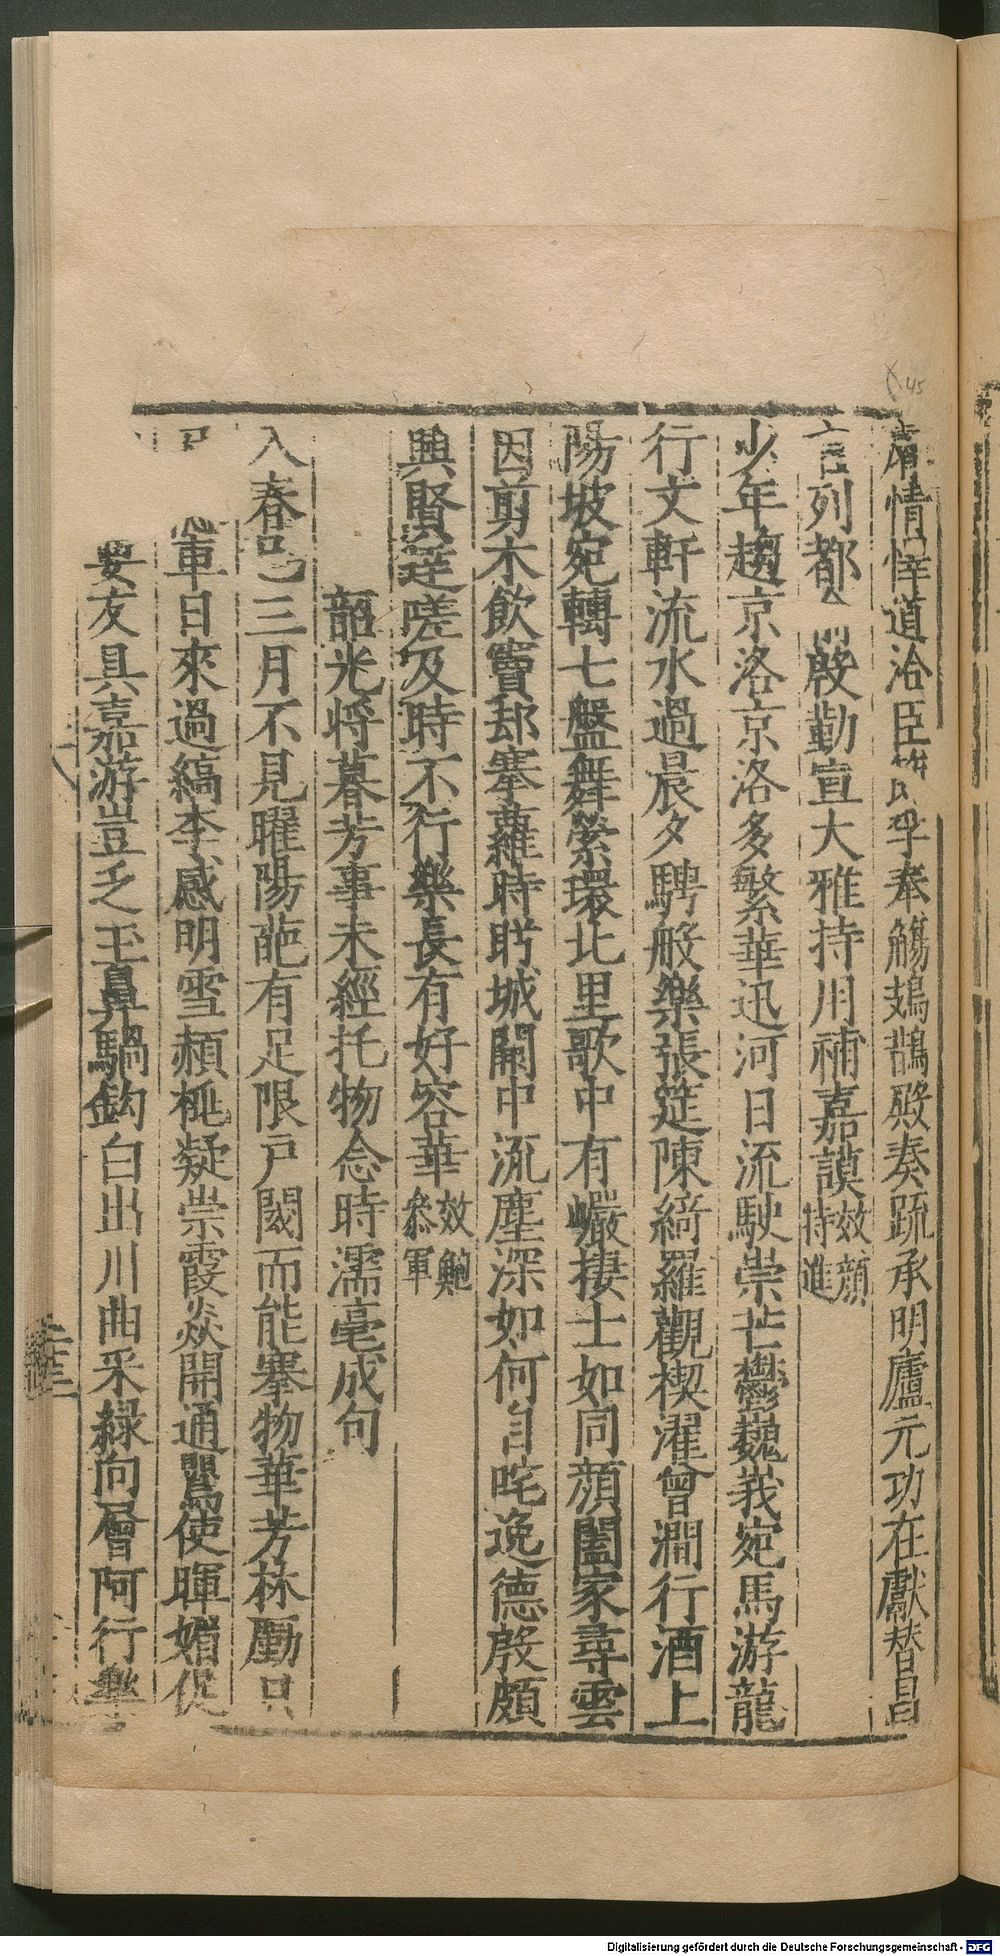 情悻道洽臣奉觴鳷鵲殿奏疏承明廬元功在獻替昌
言列都殷勤宣大雅持用補嘉謨效顔特進
少年趨京洛京洛多繁華迅河日流駛崇芒鬱巍峩宛馬游龍
行文軒流水過晨夕騁般樂張筵陳綺羅觀禊濯曾澗行酒上
陽坡宛轉七盤舞縈環北里歌中有巗棲士如同顔闔家尋雲
因剪木飲竇却搴蘿時眝城闕中流塵深如何自咤逸德殷頗
興賢達嗟及時不行樂長有好容華效鮑叅軍
韶光将暮芳事未經托物念時濡毫成句
入春已三月不見曜陽葩有足限戸閾而能搴物華芳林勵只
車日來過縞李感明雪頳桃疑崇霞焱開通鸎使暉媚促
要友具嘉游豈乏玉鼻騧鈎白出川曲采緑向層阿行樂
45
Digitalisierung gefördert durch die Deutsche Forschungsgemeinschaft - DFG